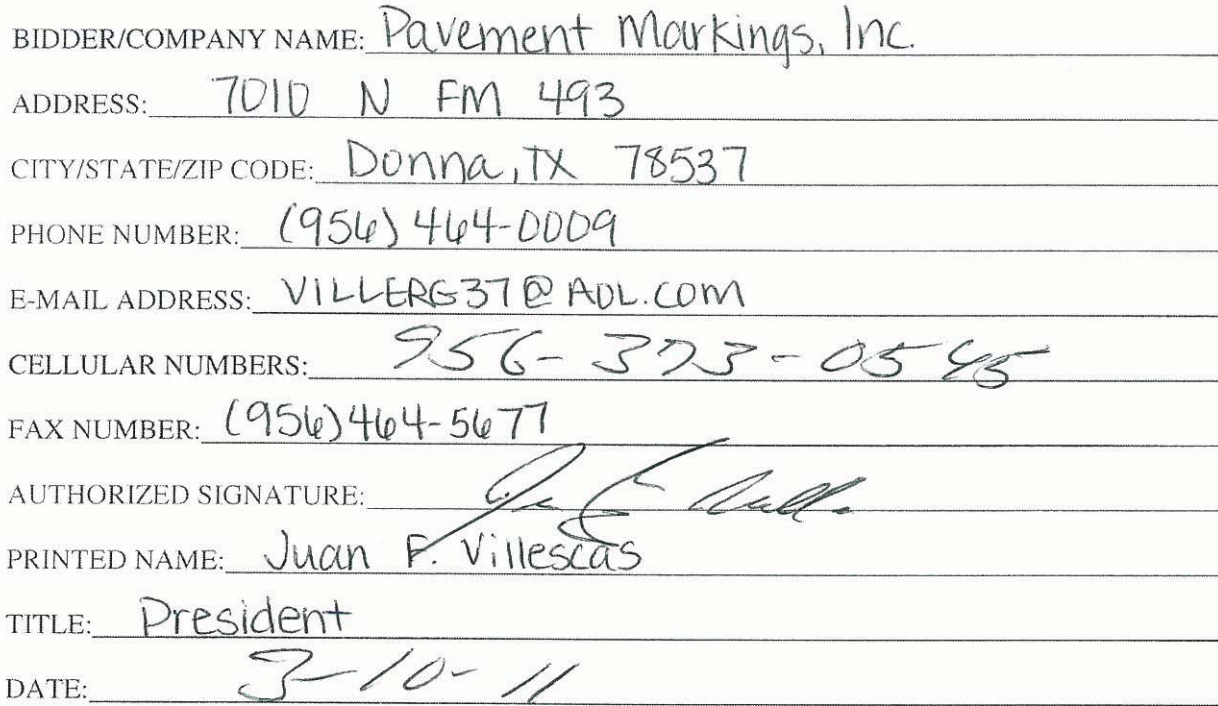 BIDDER/COMPANY NAME: Pavement Markings, Inc.
ADDRESS: 7010 N FM 493
CITY/STATE/ZIP CODE: Donna, TX 78537
PHONE NUMBER: (956) 464-0009
E-MAIL ADDRESS: VILLERG37@AOL.COM
CELLULAR NUMBERS: 956-373-0545
FAX NUMBER: (956)464-5677
AUTHORIZED SIGNATURE:
PRINTED NAME: Juan F. Villescas
TITLE: President
DATE: 3-10-11